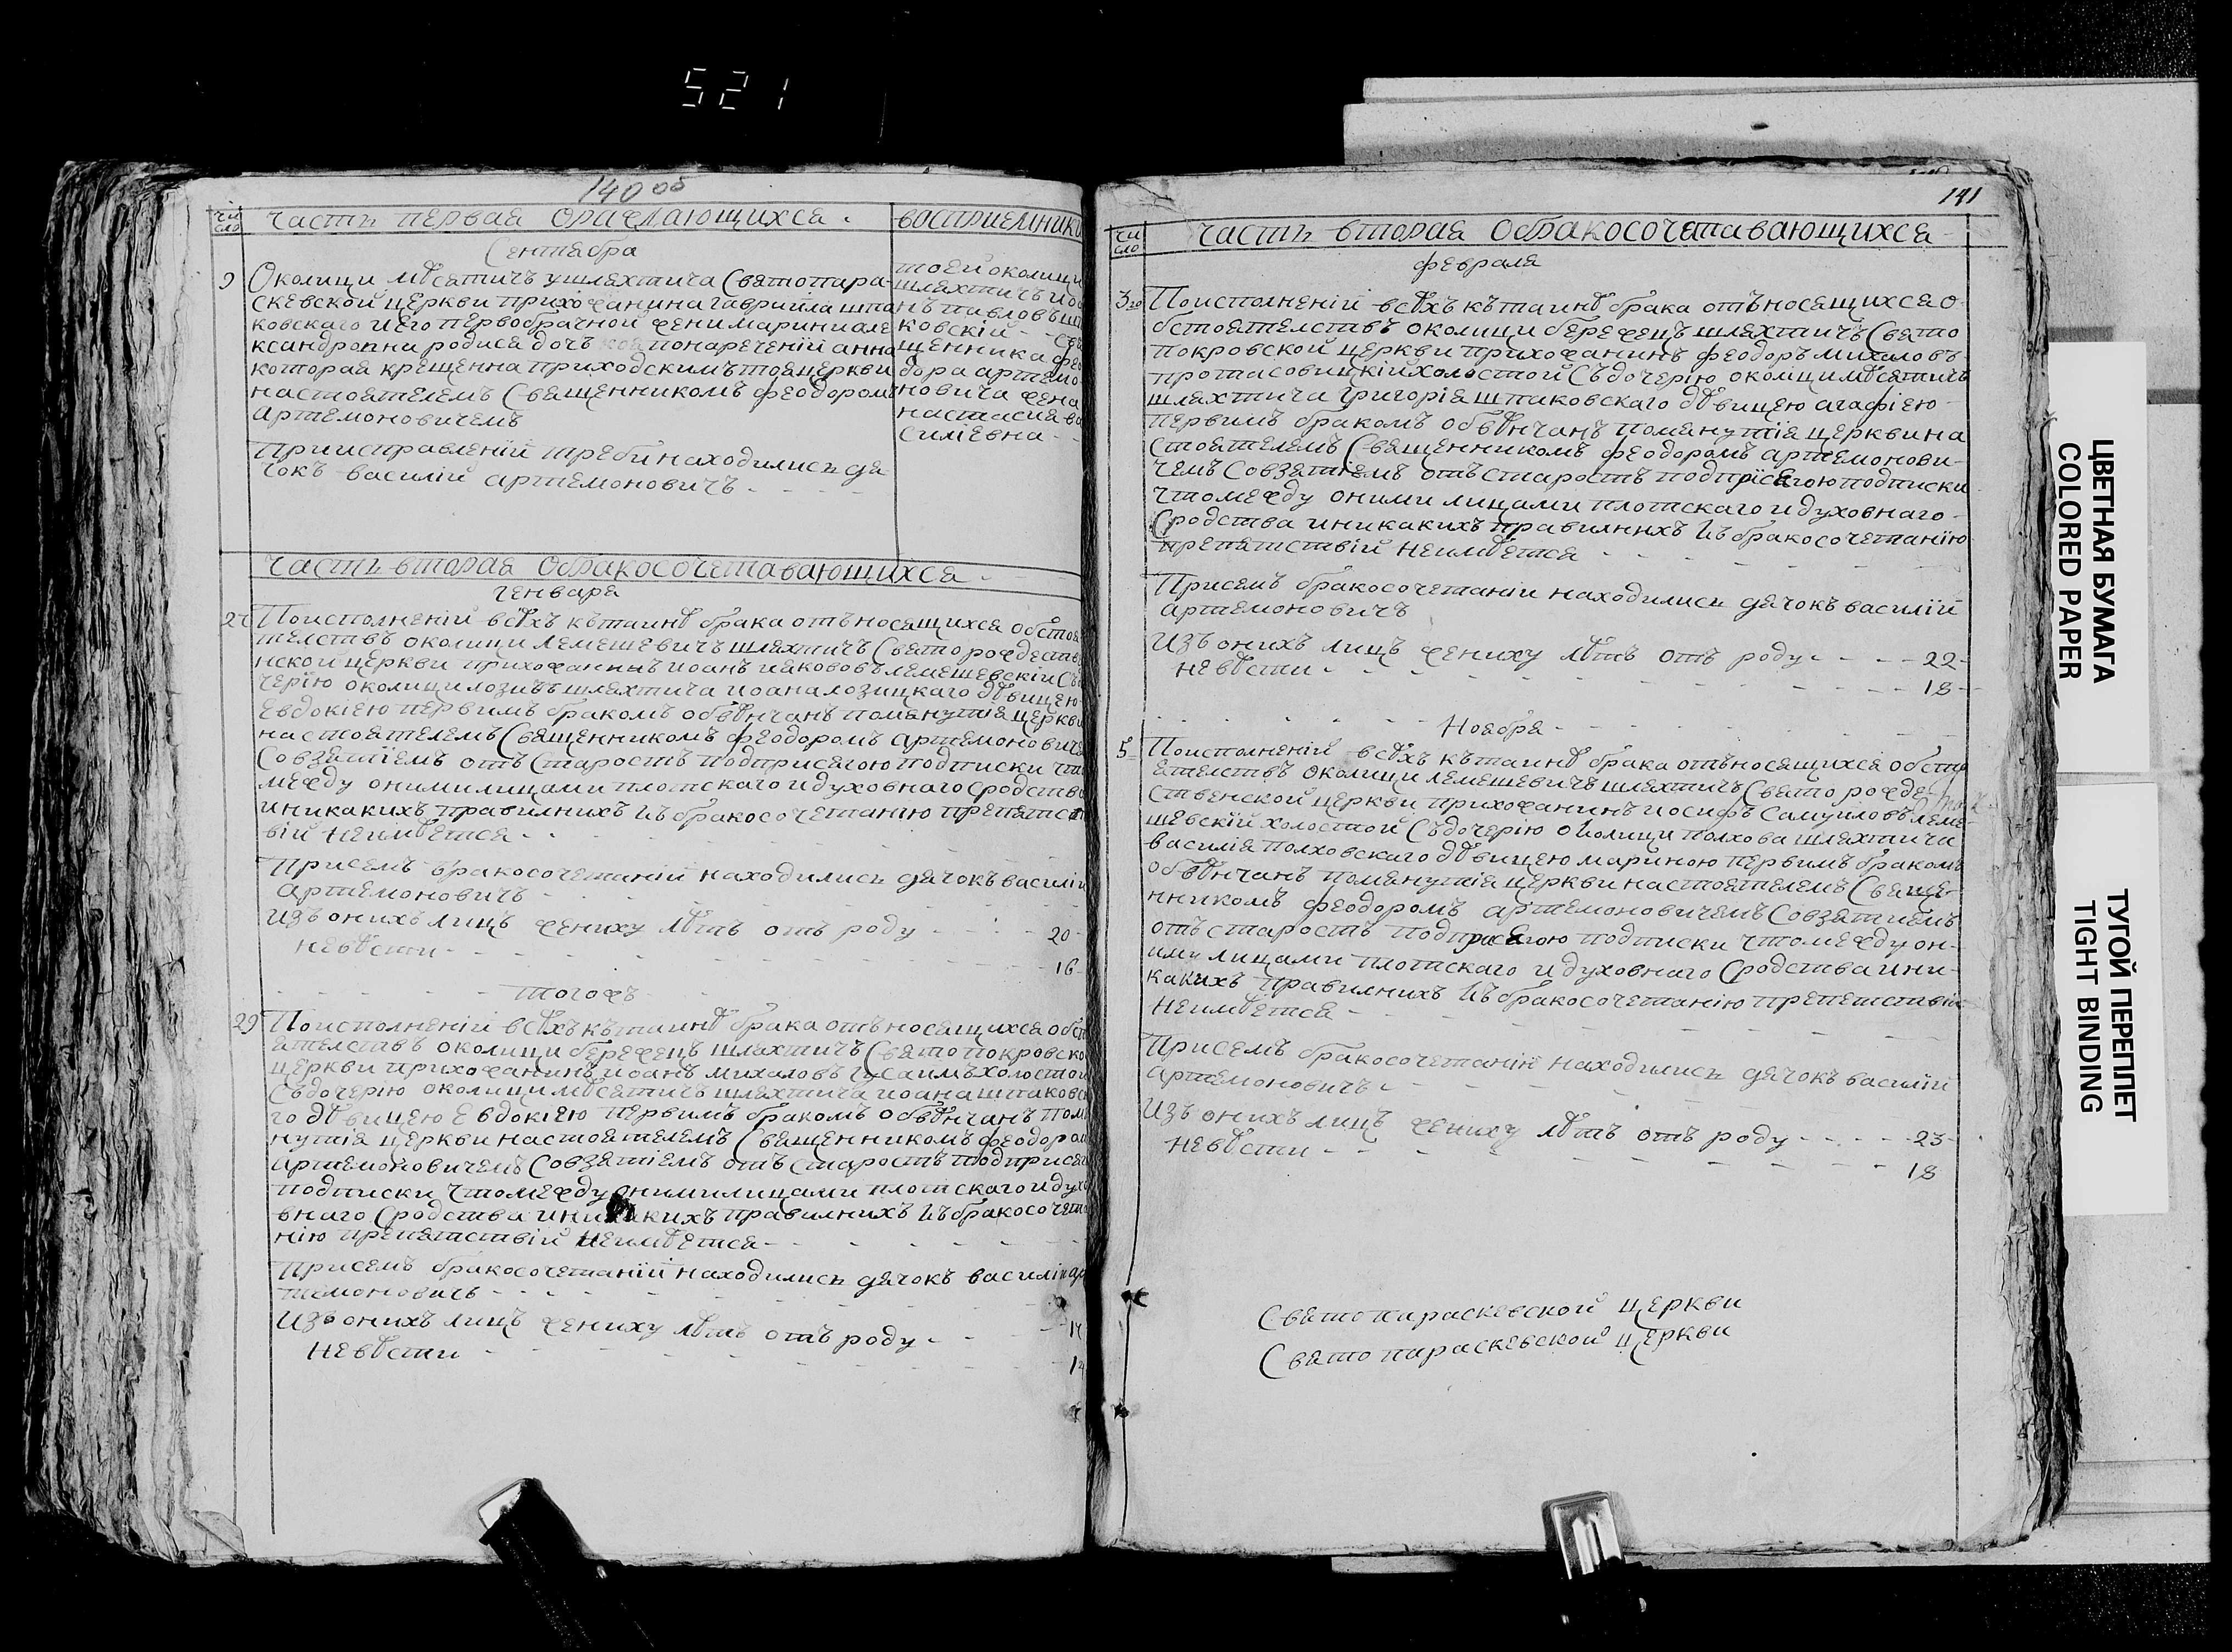 521
140 об
чи
сло
часть первая ораждающихся.
восприемники
Сентабра
9
Околици мѣсятичъ ушляхтича Святопара-
скевской церкви прихожанина гаврийла шпа
ковскаго и его первобрачной жени марини але
ксандровни родися дочъ понареченій анна
которая крещенна приходскимъ тоя церкви
настоятелемъ Священникомъ феодоромъ
артемоновичемъ
тоей околици
шляхтичъ
нъ павловъ шп
ковскій
щенника фео
дора артемо
новича жена
настасия ва
силіевна
Приисправленій треби находились дя
чокъ василій артемоновичъ
часть вторая Обракосочетавающихся
генваря
27
Поисполненій всѣхъ кътаинѣ брака отъносящихся обстоя
телствъ околици лемешевичъ шляхтичъ Святорождестве
нской церкви прихожаннъ иоанъ иаковъ лемешевскій Съ
черію околици лозичъ шляхтича иоана лозицкаго дѣвицею
Евдокіею первимъ бракомъ обвѣнчанъ помянутія церкви
настоятелемъ Священникомъ феодоромъ артемонович
Совзятіемъ отъ Старостъ подприсягою подписки что
между онимилицами плотскаго идуховнаго сродств
иникакихъ правилнихъ къбракосочетанію препятст
вій неимѣется
Присемъ бракосочетаній находились дячокъ василій
артемоновичъ
изъ онихъ лицъ жениху лѣтъ отъ роду 20
невѣсти 16
тогожъ
29
Поисполненій всѣхъ кътаинѣ брака отъносящихся обст
ятелствъ околици бережецъ шляхтичъ Святопокровско
церкви прихожанинъ иоанъ михаловъ холостой
Съдочерію околици мѣсятичъ шляхтича иоана шпаковск
го дѣвицею Евдокіею первимъ бракомъ обвѣнчанъ пом
нутія церкви настоятелемъ Священникомъ феодором
артемоновичемъ Совзятіемъ отъ Старостъ подприсяг
подписки чтомежду онимилицами плотскаго идух
внаго Сродства иникакихъ правилнихъ къбракосочет
нію препятствій неимѣется
Присемъ бракосочетаній находились дячокъ василій
темоновичъ
Изъ онихъ лицъ жениху лѣтъ отъ роду
невѣсти
141
чи
сло
часть вторая Обракосочетавающихся
февраля
3го
Поисполненій всѣхъ кътаинѣ брака отъносящихся о
бстоятелствъ околици бережецъ шляхтичъ Свято
покровской церкви прихожанинъ феодоръ михаловъ
протасовицкій холостой Съдочерію околици мѣсятичъ
шляхтича григорія шпаковскаго дѣвицею агафіею
первимъ бракомъ обвѣнчанъ помянутія церкви на
Стоятелемъ Священникомъ феодоромъ артемонови-
чемъ Совзятіемъ отъ Старостъ подприсягою подписки
чтомежду оними лицами плотскаго идуховнаго
Сродства иникакихъ правилнихъ къбракосочетанію
препятствій неимѣется
Присемъ бракосочетаній находились дячокъ василій
артемоновичъ
Изъ онихъ лицъ жениху лѣтъ отъ роду 22
невѣсти 18
Ноября
5
Поисполненій всѣхъ кътаинѣ брака отъносящихся обсто
ятелствъ околици лемешевичъ шляхтичъ Святорожде
ственской церкви прихожанинъ иосифъ Самуиловъ леме
шевскій холостой Съдочерію околици полхова шляхтича
василія полховскаго дѣвицею мариною первимъ бракомъ
обвѣнчанъ помянутія церкви настоятелемъ Свяще-
нникомъ феодоромъ артемоновичемъ Совзятіемъ
отъ старостъ подприсягою подписки чтомежду он-
ими лицами плотскаго идуховнаго Сродства ини-
какихъ правилнихъ къбракосочетанію препетствій
неимѣется
Присемъ бракосочетаній находились дячокъ василій
артемоновичъ
Изъ онихъ лицъ жениху лѣтъ отъ роду 23
невѣсти 18
Святопараскевской церкви
Святопараскевской церкви
ЦВЕТНАЯ БУМАГА
COLORED PAPER
ТУГОЙ ПЕРЕПЛЕТ
TIGHT BINDING